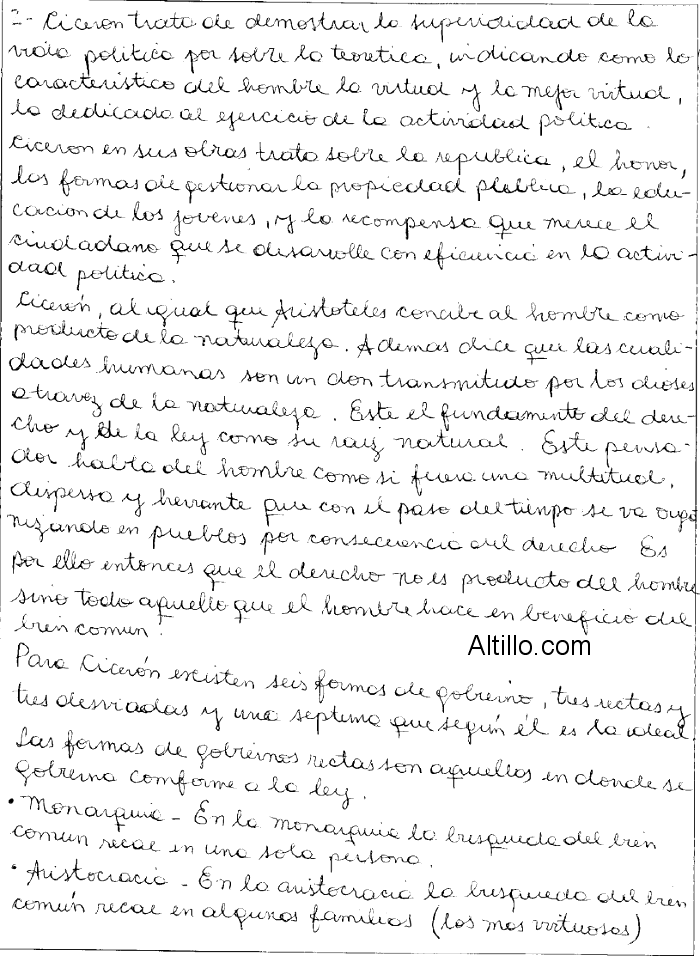 2- Ciceron trata de demostrar la superioridad de la
vida politica por sobre la teoretica, indicando como lo
caracteristico del hombre la virtud y la mejor virtud,
la dedicada al ejercicio de la actividad politica.
Ciceron en sus obras trata sobre la republica, el honor,
las formas de gestionar la propiedad plebleia, la edu-
cacion de los jovenes, y la recompensa que merece el
ciudadano que se desarrolle con eficiencia en la activi-
dad politica.
Cicerón, al igual que Aristoteles concibe al hombre como
producto de la naturaleza. Ademas dice que las cuali-
dades humanas son un don transmitido por los dioses
a travez de la naturaleza. Este el fundamento del dere-
cho y de la ley como su raiz natural. Este pensa-
dor habla del hombre como si fuera una multitud,
dispersa y herrante que con el paso del tienpo se va orga
nizando en pueblos por consecuencia del derecho Es
por ello entonces que el derecho no es producto del hombre
sino todo aquello que el hombre hace en beneficio del
bien comun.
Altillo.com
Para Cicerón existen seis formas de gobierno, tres rectas y
tres desviadas y una septima que según él es la ideal
Las formas de gobiernos rectas son aquellos en donde se
gobierna comforme a la ley.
• Monarquia - En la monarquia la busqueda del bien
comun recae en una sola persona.
• Aristocracia - En la aristocracia la busqueda del bien
común recae en algunas familias (los mas virtuosos)